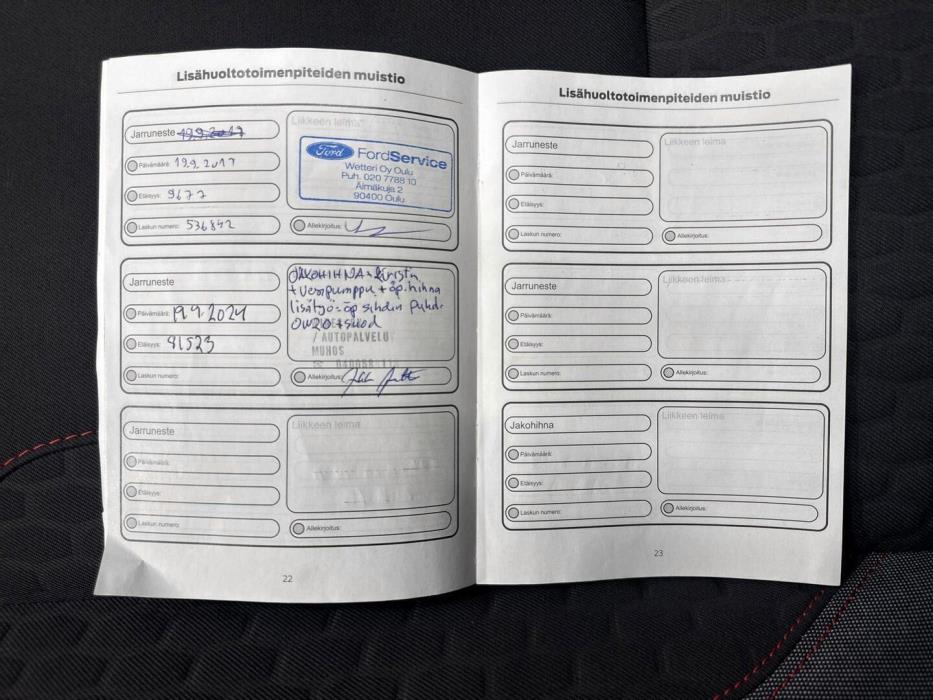 Lisähuoltotoimenpiteiden muistio
Jarruneste 19.9.2017
Päivämäärä: 19.9.2017
Etäisyys: 9677
Laskun numero: 536842
Liikkeen leima
Ford FordService
Wetteri Oy Oulu
Puh. 020 7788 10
Äimäkuja 2
90400 Oulu
Allekirjoitus:
Jarruneste
Päivämäärä: 19.9.2024
Etäisyys: 81523
Laskun numero:
JAKOHIHNA + kiristin
+ vesipumppu + öp.hihna
lisätyö: öp sihdin puhd.
0W20 + suod
/ AUTOPALVELU
MUHOS
Allekirjoitus:
Jarruneste
Päivämäärä:
Etäisyys:
Laskun numero:
Liikkeen leima
Allekirjoitus:
22
Lisähuoltotoimenpiteiden muistio
Jarruneste
Päivämäärä:
Etäisyys:
Laskun numero:
Liikkeen leima
Allekirjoitus:
Jarruneste
Päivämäärä:
Etäisyys:
Laskun numero:
Liikkeen leima
Allekirjoitus:
Jakohihna
Päivämäärä:
Etäisyys:
Laskun numero:
Liikkeen leima
Allekirjoitus:
23